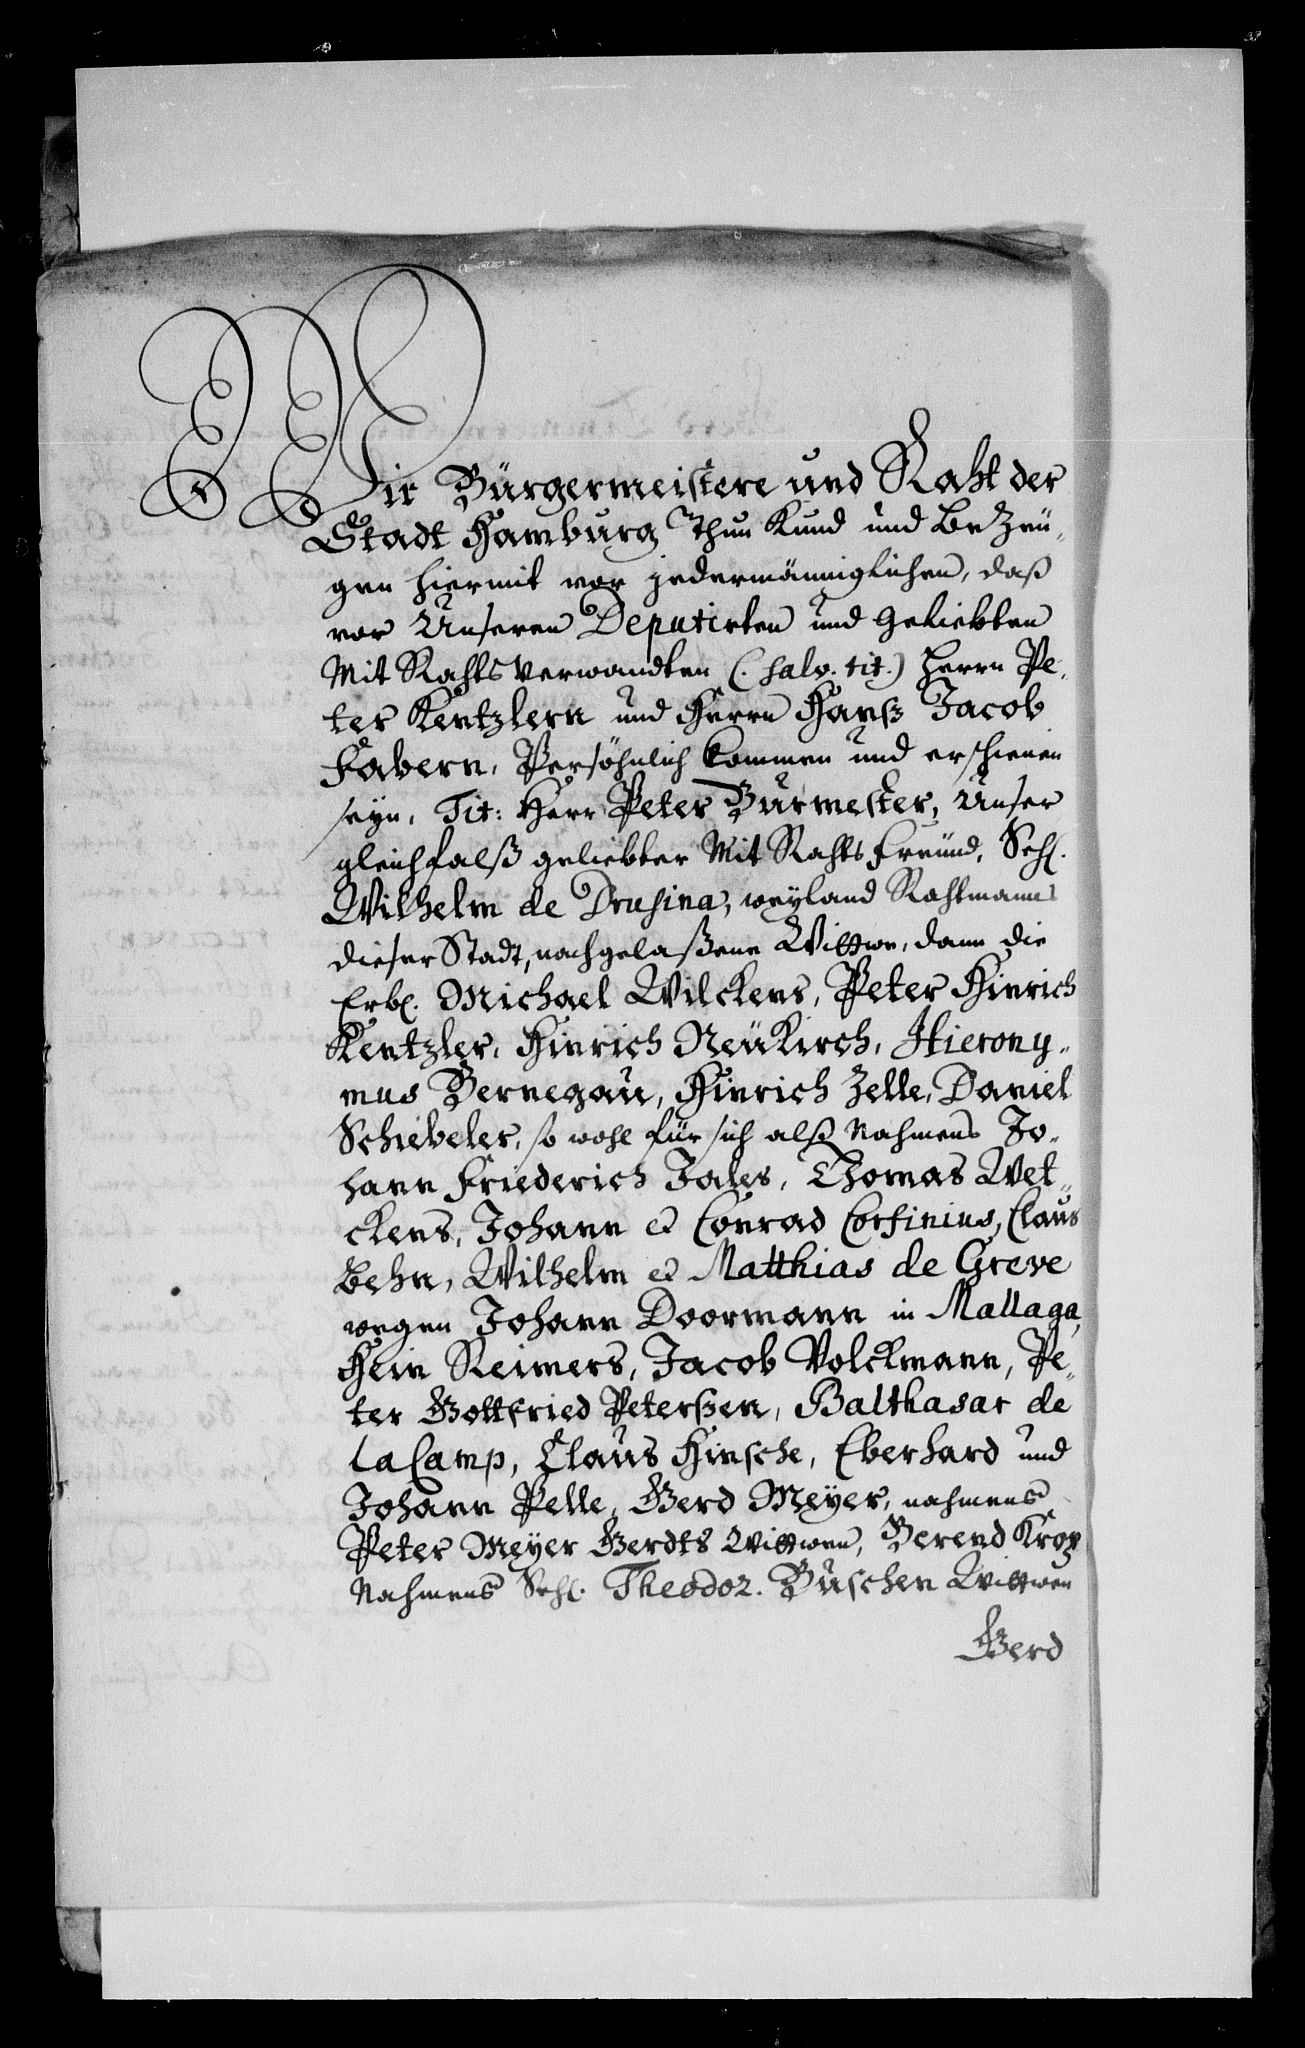 Wir Bürgermeistere und Raht der
Stadt Hamburg Thun Kund und Bezeu„
gen hiermit vor jedermänniglichen, daß
vor Unseren Deputirten und Geliebten
Mit Rahts Verwandten (. salv. tit.) Herrn Pe„
ter Kentzlern und Herrn Hanß Jacob
Fabern, Persöhnlich kommen und erschienen
seyn, Tit: Herr Peter Burmester, Unser
gleichfalß geliebter Mit Rahts freund, Sehl.
Wilhelm de Drusina, weyland Rahtmanns
dieser Stadt, nachgelaßene Wittwe, dann die
Erb. Michael Wilckens, Peter Hinrich
Kentzler, Hinrich Neükirch, Hierony„
mus Bernegau, Hinrich Zelle, Daniel
Schiebeler, so wohl für sich alß Nahmens Jo„
hann Friederich Jales, Thomas Wet„
ckens, Johann et Conrad Corfinius, Claus
Behn, Wilhelm et Matthias de Greve
wegen Johann Doormann in Mallaga,
Hein Reimers, Jacob Volckmann, Pe„
ter Gottfried Peterßen, Balthasar de
la Camp, Claus Hinsche, Eberhard und
Johann Pelle, Gerd Meÿer, nahmens
Peter Meÿer Gerdts Wittwen, Berend Krop
Nahmens Sehl. Theodor. Büschen Wittwen
Gerd